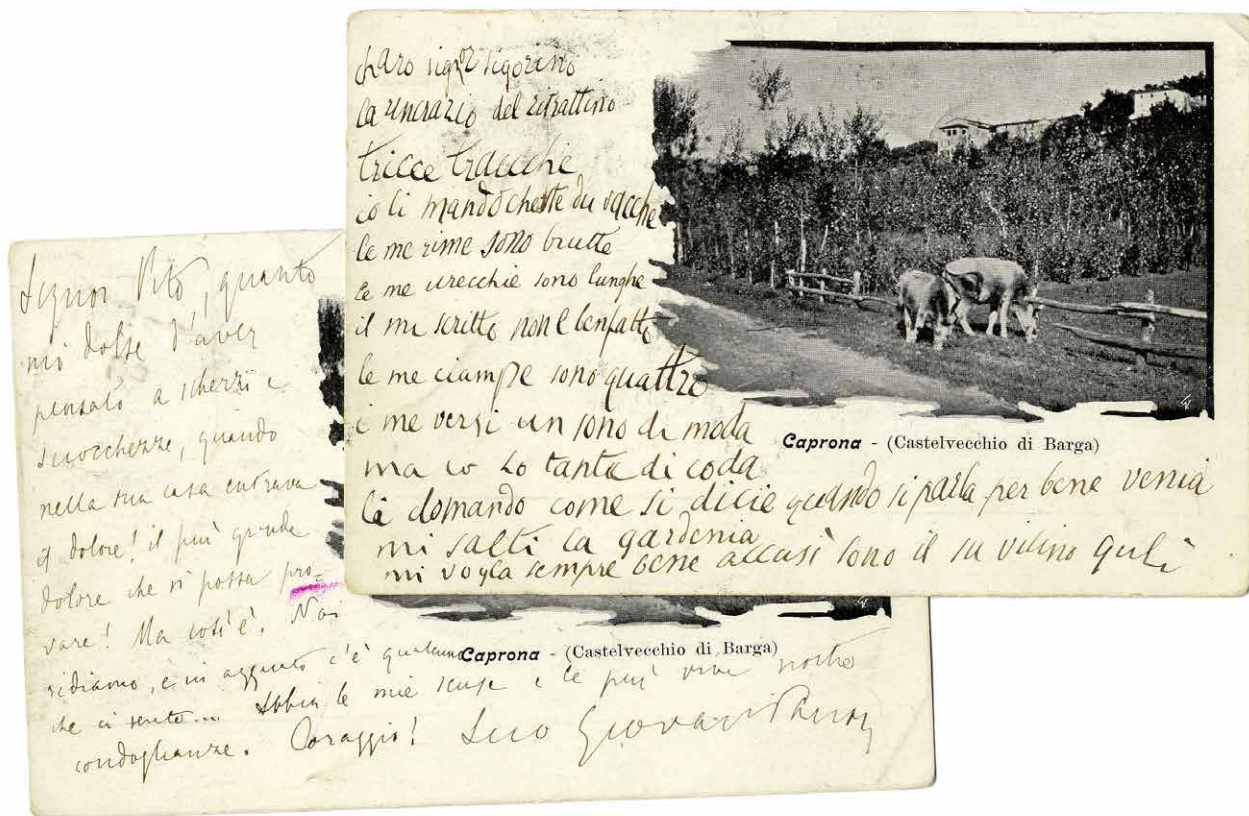 charo signor sigorino
la rincrazio del ritrattino
tricce tracche
io li mando cheste du vacche
le me rime sono brutte
le me urecchie sono lunghe
il mi scritto non è benfatto
le me ciampe sono quattro
i me versi un sono di moda
ma io ho tanta di coda
la domando come si dicie quando si parla per bene venia
mi salti la gardenia
mi voglia sempre bene accusì sono il su vilino Gulì
Caprona - (Castelvecchio di Barga)
Signor Vito, quanto
mi dolse d'aver
pensato a scherzi e
sciocchezze, quando
nella sua casa entrava
il dolore! il più grande
dolore che si possa pro-
vare! Ma così è. Noi
ridiamo, e in agguato c'è qualcuno
che ci sente... Abbia le mie scuse e le più vive nostre
condoglianze. Coraggio! Suo Giovanni Pascoli
Caprona - (Castelvecchio di Barga)